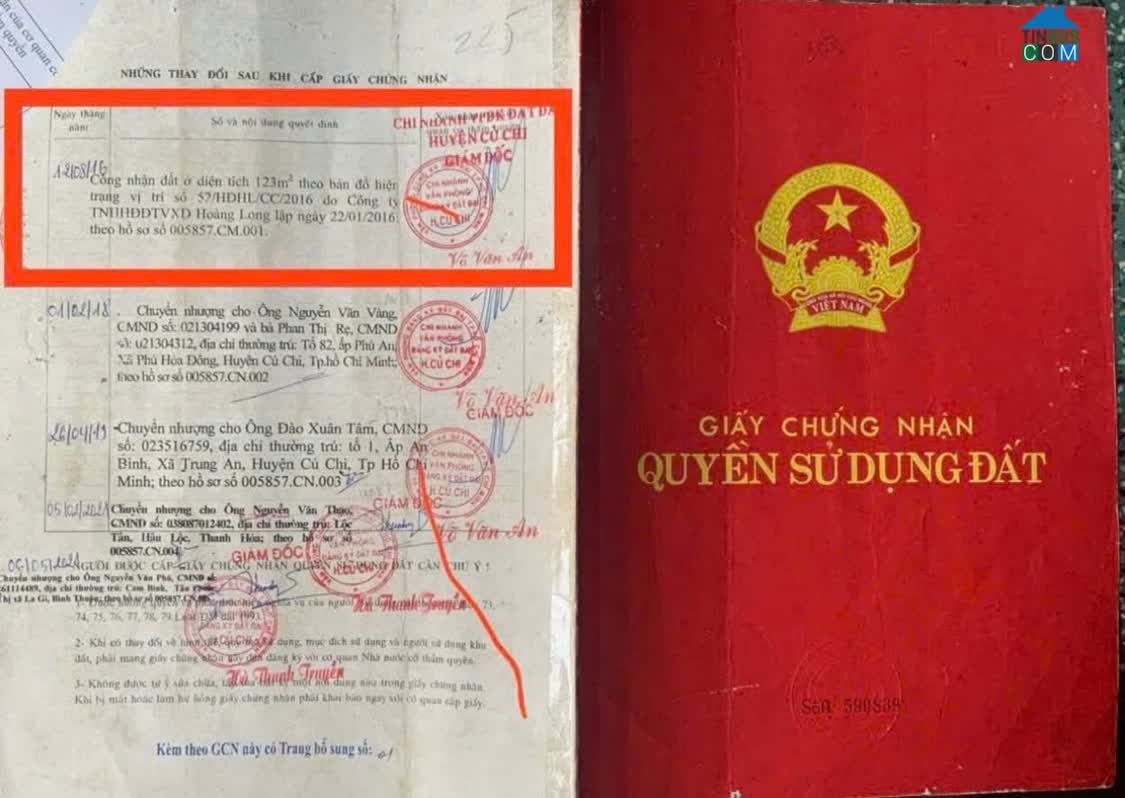 225
NHỮNG THAY ĐỔI SAU KHI CẤP GIẤY CHỨNG NHẬN
Ngày tháng năm
Số và nội dung quyết định
CHI NHÁNH VPĐK ĐẤT ĐA
HUYỆN CỦ CHI
GIÁM ĐỐC
12/08/16
Công nhận đất ở diện tích 123m² theo bản đồ hiện
trạng vị trí số 57/HDHL/CC/2016 do Công ty
TNHHĐDTVXD Hoàng Long lập ngày 22/01/2016;
theo hồ sơ số 005857.CM.001.
CHI NHÁNH
VĂN PHÒNG
H.CỦ CHI
Võ Văn An
01/02/18
Chuyển nhượng cho Ông Nguyễn Văn Vàng,
CMND số: 021304199 và bà Phan Thị Rẹ, CMND
số: 021304312, địa chỉ thường trú: Tổ 82, ấp Phú An,
Xã Phú Hòa Đông, Huyện Củ Chi, Tp.hồ Chí Minh;
theo hồ sơ số 005857.CN.002
CHI NHÁNH
VĂN PHÒNG
ĐĂNG KÝ ĐẤT ĐAI
H.CỦ CHI
Võ Văn An
GIÁM ĐỐC
26/04/19
-Chuyển nhượng cho Ông Đào Xuân Tâm, CMND
số: 023516759, địa chỉ thường trú: tổ 1, Ấp An
Bình, Xã Trung An, Huyện Củ Chi, Tp Hồ Chí
Minh; theo hồ sơ số 005857.CN.003
VĂN PHÒNG
H.CỦ CHI
GIÁM ĐỐC
Võ Văn An
05/02/2021
Chuyển nhượng cho Ông Nguyễn Văn Thao,
CMND số: 038087012402, địa chỉ thường trú: Lộc
Tân, Hậu Lộc, Thanh Hóa; theo hồ sơ số
005857.CN.004
GIÁM ĐỐC
VĂN PHÒNG
ĐĂNG KÝ ĐẤT ĐAI
H.CỦ CHI
Hà Thanh Truyền
06/05/2021
NGƯỜI ĐƯỢC CẤP GIẤY CHỨNG NHẬN QUYỀN SỬ DỤNG ĐẤT CẦN CHÚ Ý !
Chuyển nhượng cho Ông Nguyễn Văn Phú, CMND số:
261114489, địa chỉ thường trú: Cam Bình, Tân
Thị xã La Gi, Bình Thuận; theo hồ sơ số 005857.CN.
của người sử dụng 73,
74, 75, 76, 77, 78, 79 Luật Đất đai 1993.
2- Khi có thay đổi về hình thể, quy mô sử dụng, mục đích sử dụng và người sử dụng khu
đất, phải mang giấy chứng nhận này đến đăng ký với cơ quan Nhà nước có thẩm quyền.
Hà Thanh Truyền
3- Không được tự ý sửa chữa, tẩy xóa bất kỳ một nội dung nào trong giấy chứng nhận.
Khi bị mất hoặc làm hư hỏng giấy chứng nhận phải khai báo ngay với cơ quan cấp giấy.
Kèm theo GCN này có Trang bổ sung số: 01
TINBDS
COM
VIỆT NAM
GIẤY CHỨNG NHẬN
QUYỀN SỬ DỤNG ĐẤT
SốA 590838